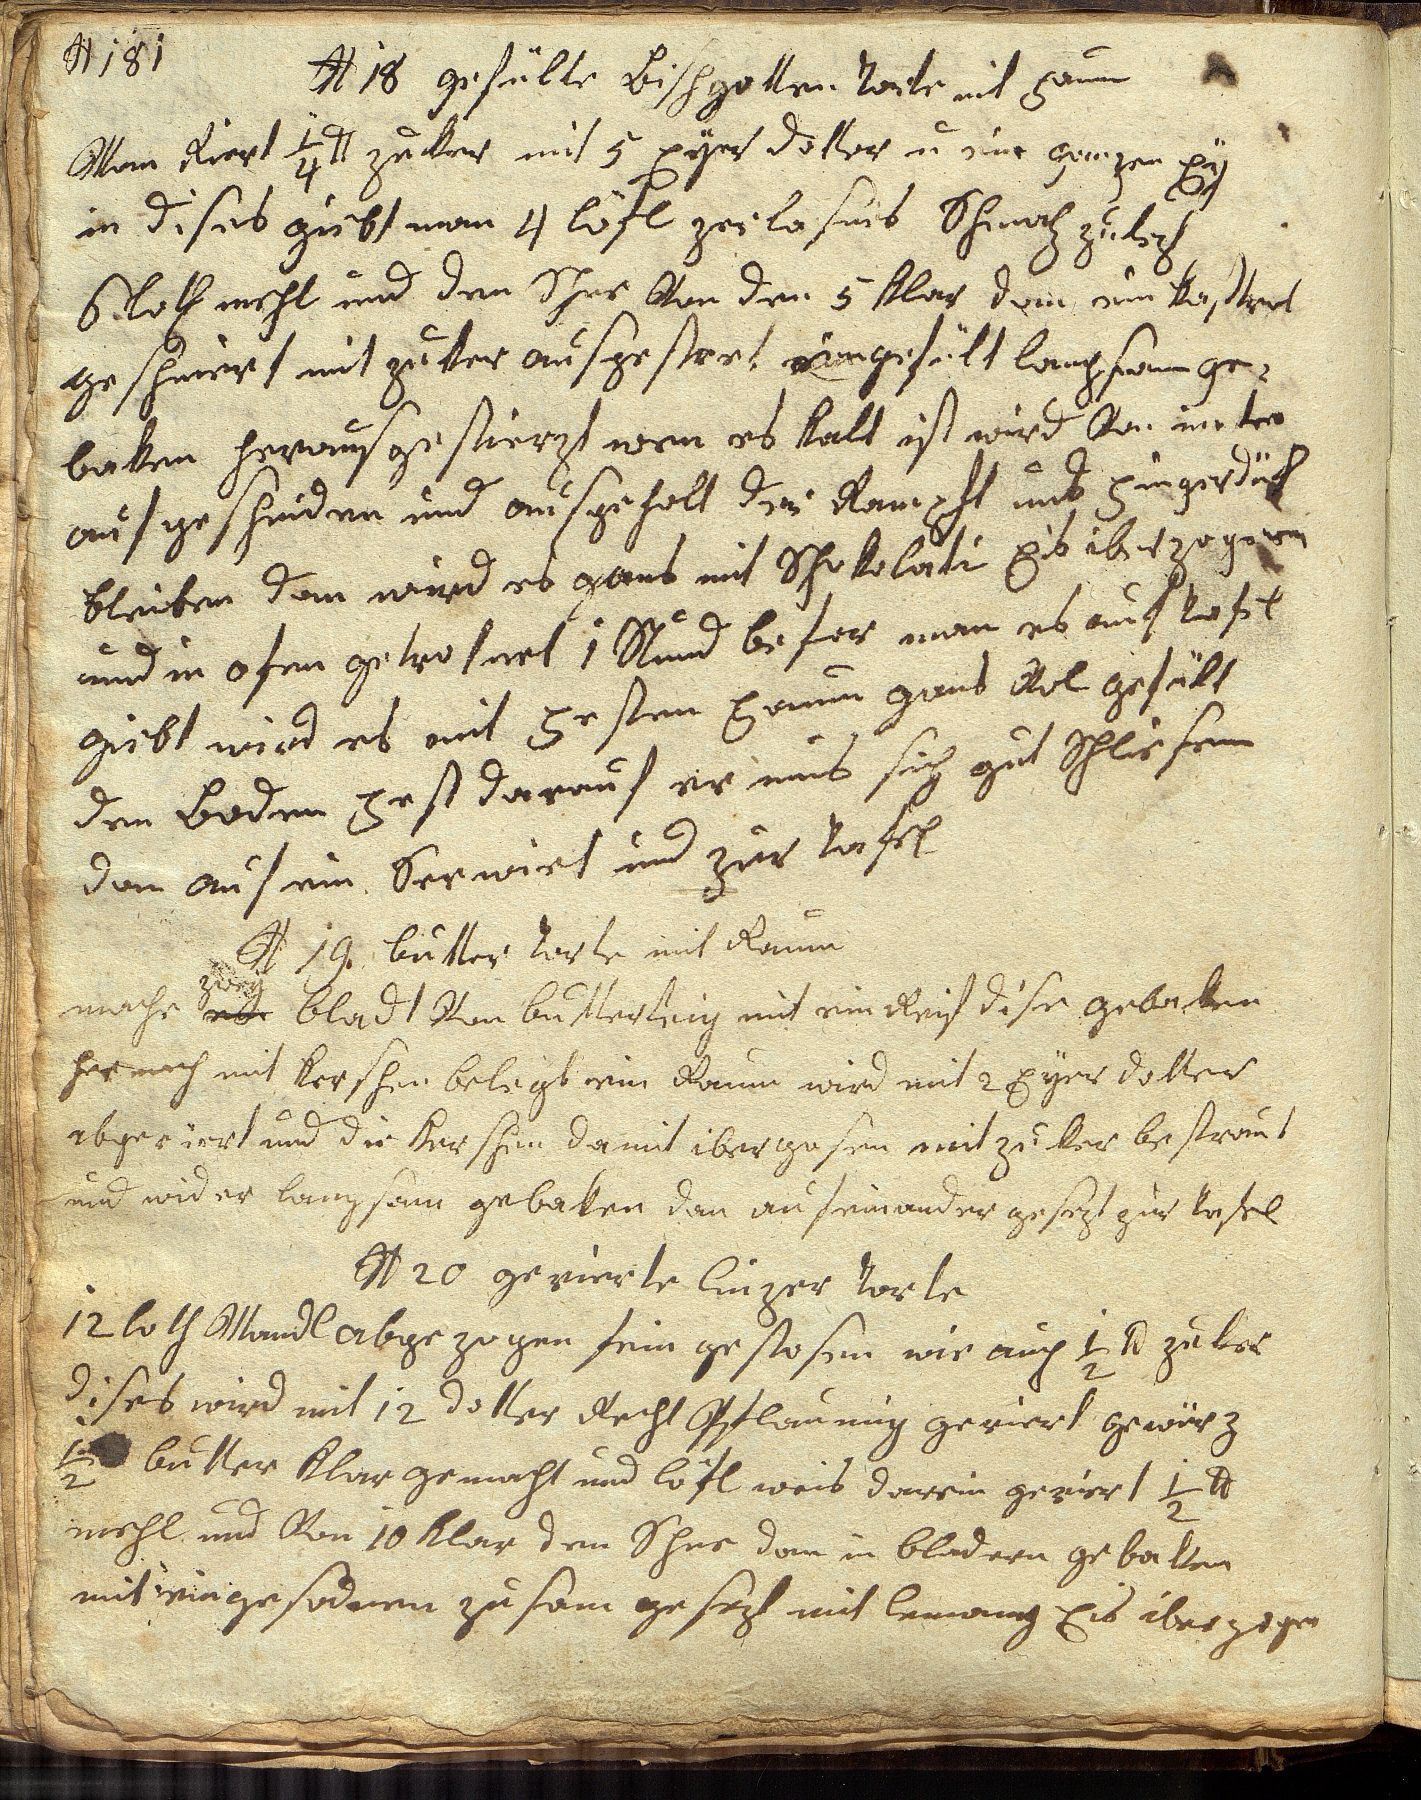 # 181
# 18 gefülte Bischgotten Torte mit Faum
Man Riert 1/4 ℔ zuker mit 5 Eyer dotter u ein ganzen Ey
in dises giebt man 4 löfl zerlasnes Schmalz zuletzt
6 loth mehl und den Schne Von den 5 Klar dan ein Kastrol
geschmiert mit zuker ausgestret eingefült langsam ge-
baken herausgestierzt wen es kalt ist wird Von unten
aufgeschniden und ausgeholt der Rampft mus Fingerdük
bleiben dan wird es gans mit Schokolati Eis iberzogen
und in ofen getroknet 1 Stund befor man es auf Tafel
giebt wird es mit Festen Faum gans Vol gefült
den Boden Fest darauf er mus sich gut Schliesen
dan auf ein Serwiet und zur Tafel
# 19 butter Torte mit Raum
mache zwey bladt Von butterteig mit ein Reif dise gebaken
hernach mit Kerschen belegt ein Raum wird mit 2 Eyer dotter
abgeriert und die Kerschen damit ibergosen mit zuker bestraut
und wider langsam gebaken dan aufeinander gesezt zur Tafel
# 20 gerierte linzer Torte
12 loth Mandl abgezogen fein gestosen wie auch 1/2 ℔ zuker
dises wird mit 12 dotter Recht Pflaumig geriert gewürz
1/2 butter Klar gemacht und löfl weis darein geriert 1/2 ℔
mehl und Von 10 Klar den Schne dan in bladern gebaken
mit eingesodnen zusam gesezt mit lemany Eis iberzogen